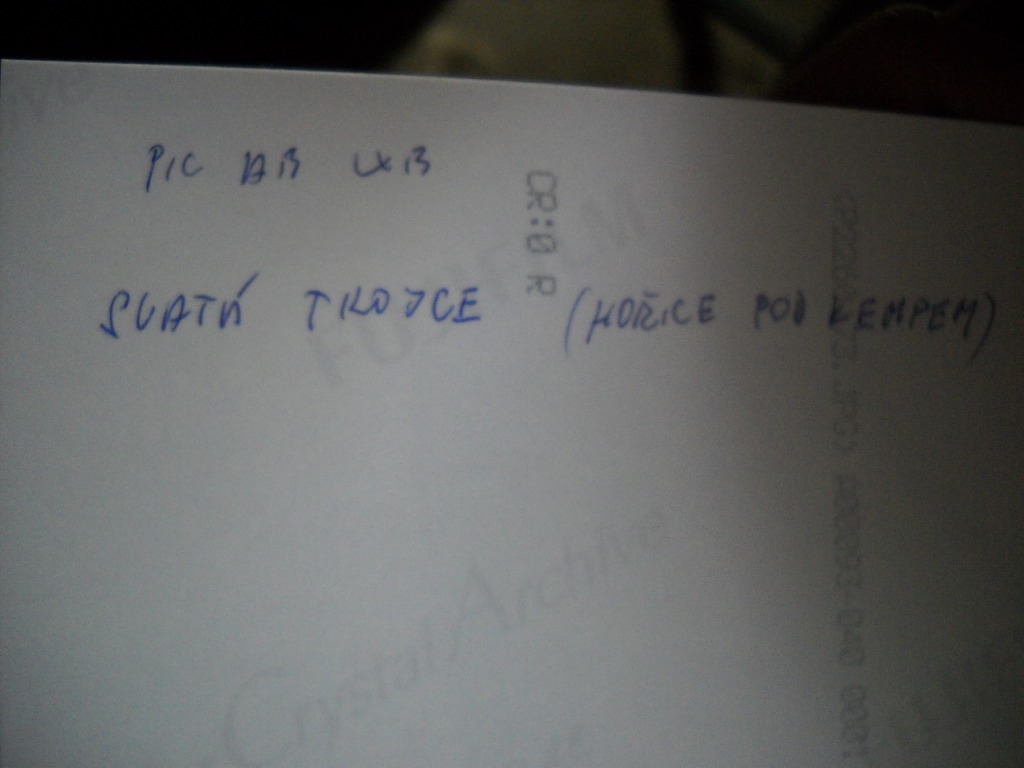 PIC AB
SVATÁ TROJCE (HOŘICE POD KEMPEM)
CR:0 R
FUJIFILM
Crystal Archive